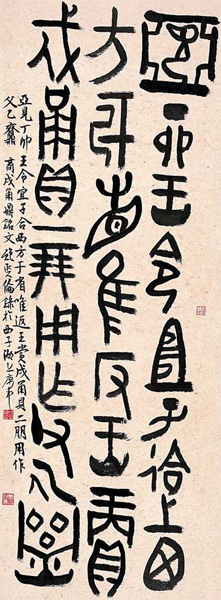 亞丁卯王令宜子迨西
方于省隹反王賞
戍甬貝二朋用乍父乙齋
亞見丁卯王令宜子合西方于省唯返王賞戍甬貝二朋用作
父乙齋 商戍甬鼎銘文 倫錄於西子湖上庚申